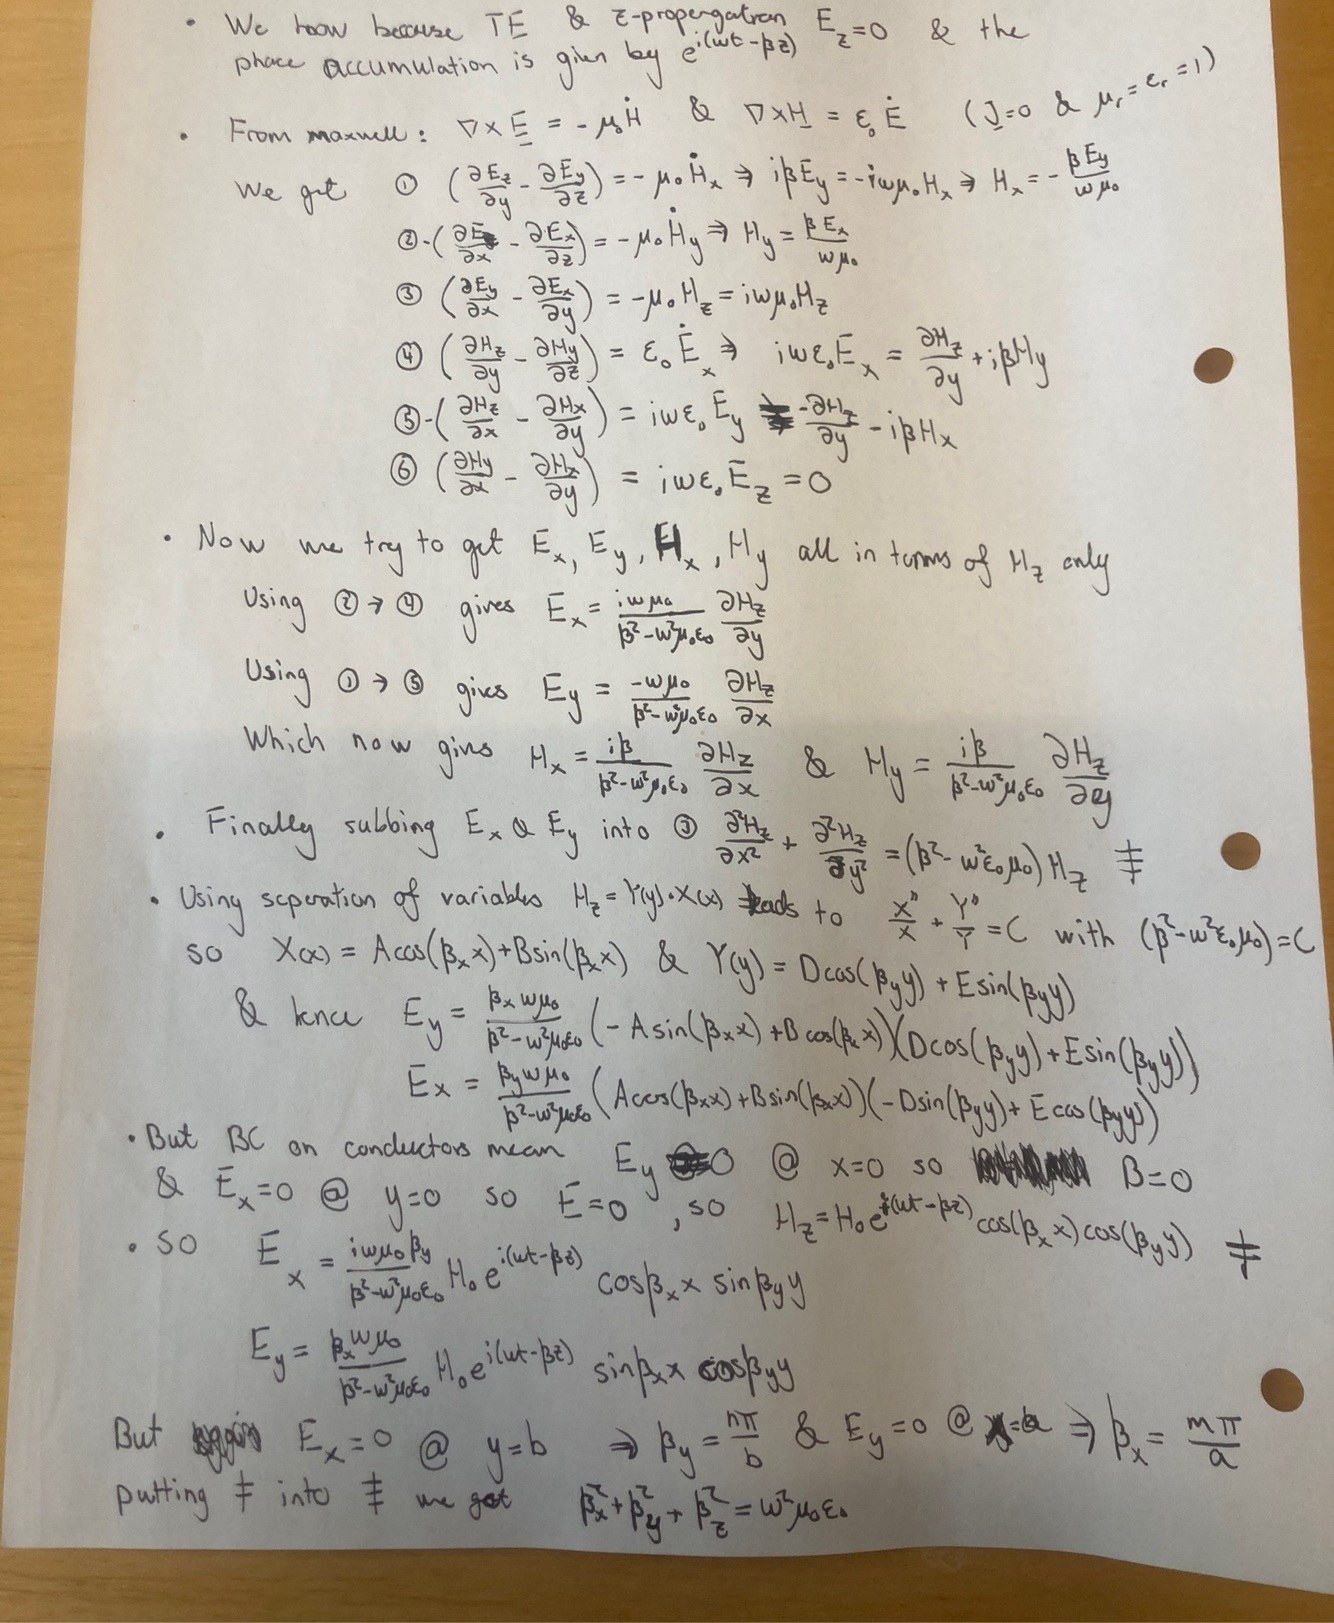 • We know because TE & z-propergatran E_z=0 & the
phase accumulation is given by e^{i(ωt-βz)}
• From maxwell: ∇×E = -μ₀Ḣ & ∇×H = ε₀Ė (J=0 & μ_r=ε_r=1)
We get ① (∂E_z/∂y - ∂E_y/∂z) = -μ₀Ḣ_x ⇒ iβE_y = -iωμ₀H_x ⇒ H_x = -βE_y/ωμ₀
②-(∂E_z/∂x - ∂E_x/∂z) = -μ₀Ḣ_y ⇒ H_y = βE_x/ωμ₀
③ (∂E_y/∂x - ∂E_x/∂y) = -μ₀H_z = iωμ₀H_z
④ (∂H_z/∂y - ∂H_y/∂z) = ε₀Ė_x ⇒ iωε₀E_x = ∂H_z/∂y + iβH_y
⑤-(∂H_z/∂x - ∂H_x/∂y) = iωε₀E_y -∂H_z/∂y - iβH_x
⑥ (∂H_y/∂x - ∂H_x/∂y) = iωε₀E_z = 0
• Now we try to get E_x, E_y, H_x, H_y all in terms of H_z only
Using ② → ④ gives E_x = iωμ₀/(β²-ω²μ₀ε₀) ∂H_z/∂y
Using ① → ⑤ gives E_y = -ωμ₀/(β²-ω²μ₀ε₀) ∂H_z/∂x
Which now gives H_x = iβ/(β²-ω²μ₀ε₀) ∂H_z/∂x & H_y = iβ/(β²-ω²μ₀ε₀) ∂H_z/∂y
• Finally subbing E_x & E_y into ③ ∂²H_z/∂x² + ∂²H_z/∂y² = (β²-ω²ε₀μ₀)H_z ‡
• Using seperation of variables H_z = Y(y)·X(x) leads to X''/X + Y''/Y = C with (β²-ω²ε₀μ₀)=C
so X(x) = Acos(β_x x)+Bsin(β_x x) & Y(y) = Dcos(β_y y) + Esin(β_y y)
& hence E_y = β_xωμ₀/(β²-ω²μ₀ε₀) (-Asin(β_x x)+Bcos(β_x x))(Dcos(β_y y)+Esin(β_y y))
E_x = β_yωμ₀/(β²-ω²μ₀ε₀) (Acos(β_x x)+Bsin(β_x x))(-Dsin(β_y y)+Ecos(β_y y))
• But BC on conductors mean E_y 0 @ x=0 so B=0
& E_x=0 @ y=0 so E=0, so H_z=H₀e^{i(ωt-βz)}cos(β_x x)cos(β_y y) ‡
• so E_x = iωμ₀β_y/(β²-ω²μ₀ε₀) H₀e^{i(ωt-βz)} cosβ_x x sinβ_y y
E_y = β_xωμ₀/(β²-ω²μ₀ε₀) H₀e^{i(ωt-βz)} sinβ_x x cosβ_y y
But E_x=0 @ y=b ⇒ β_y = nπ/b & E_y=0 @ x=a ⇒ β_x = mπ/a
putting ‡ into ‡ we get β_x²+β_y²+β_z² = ω²μ₀ε₀